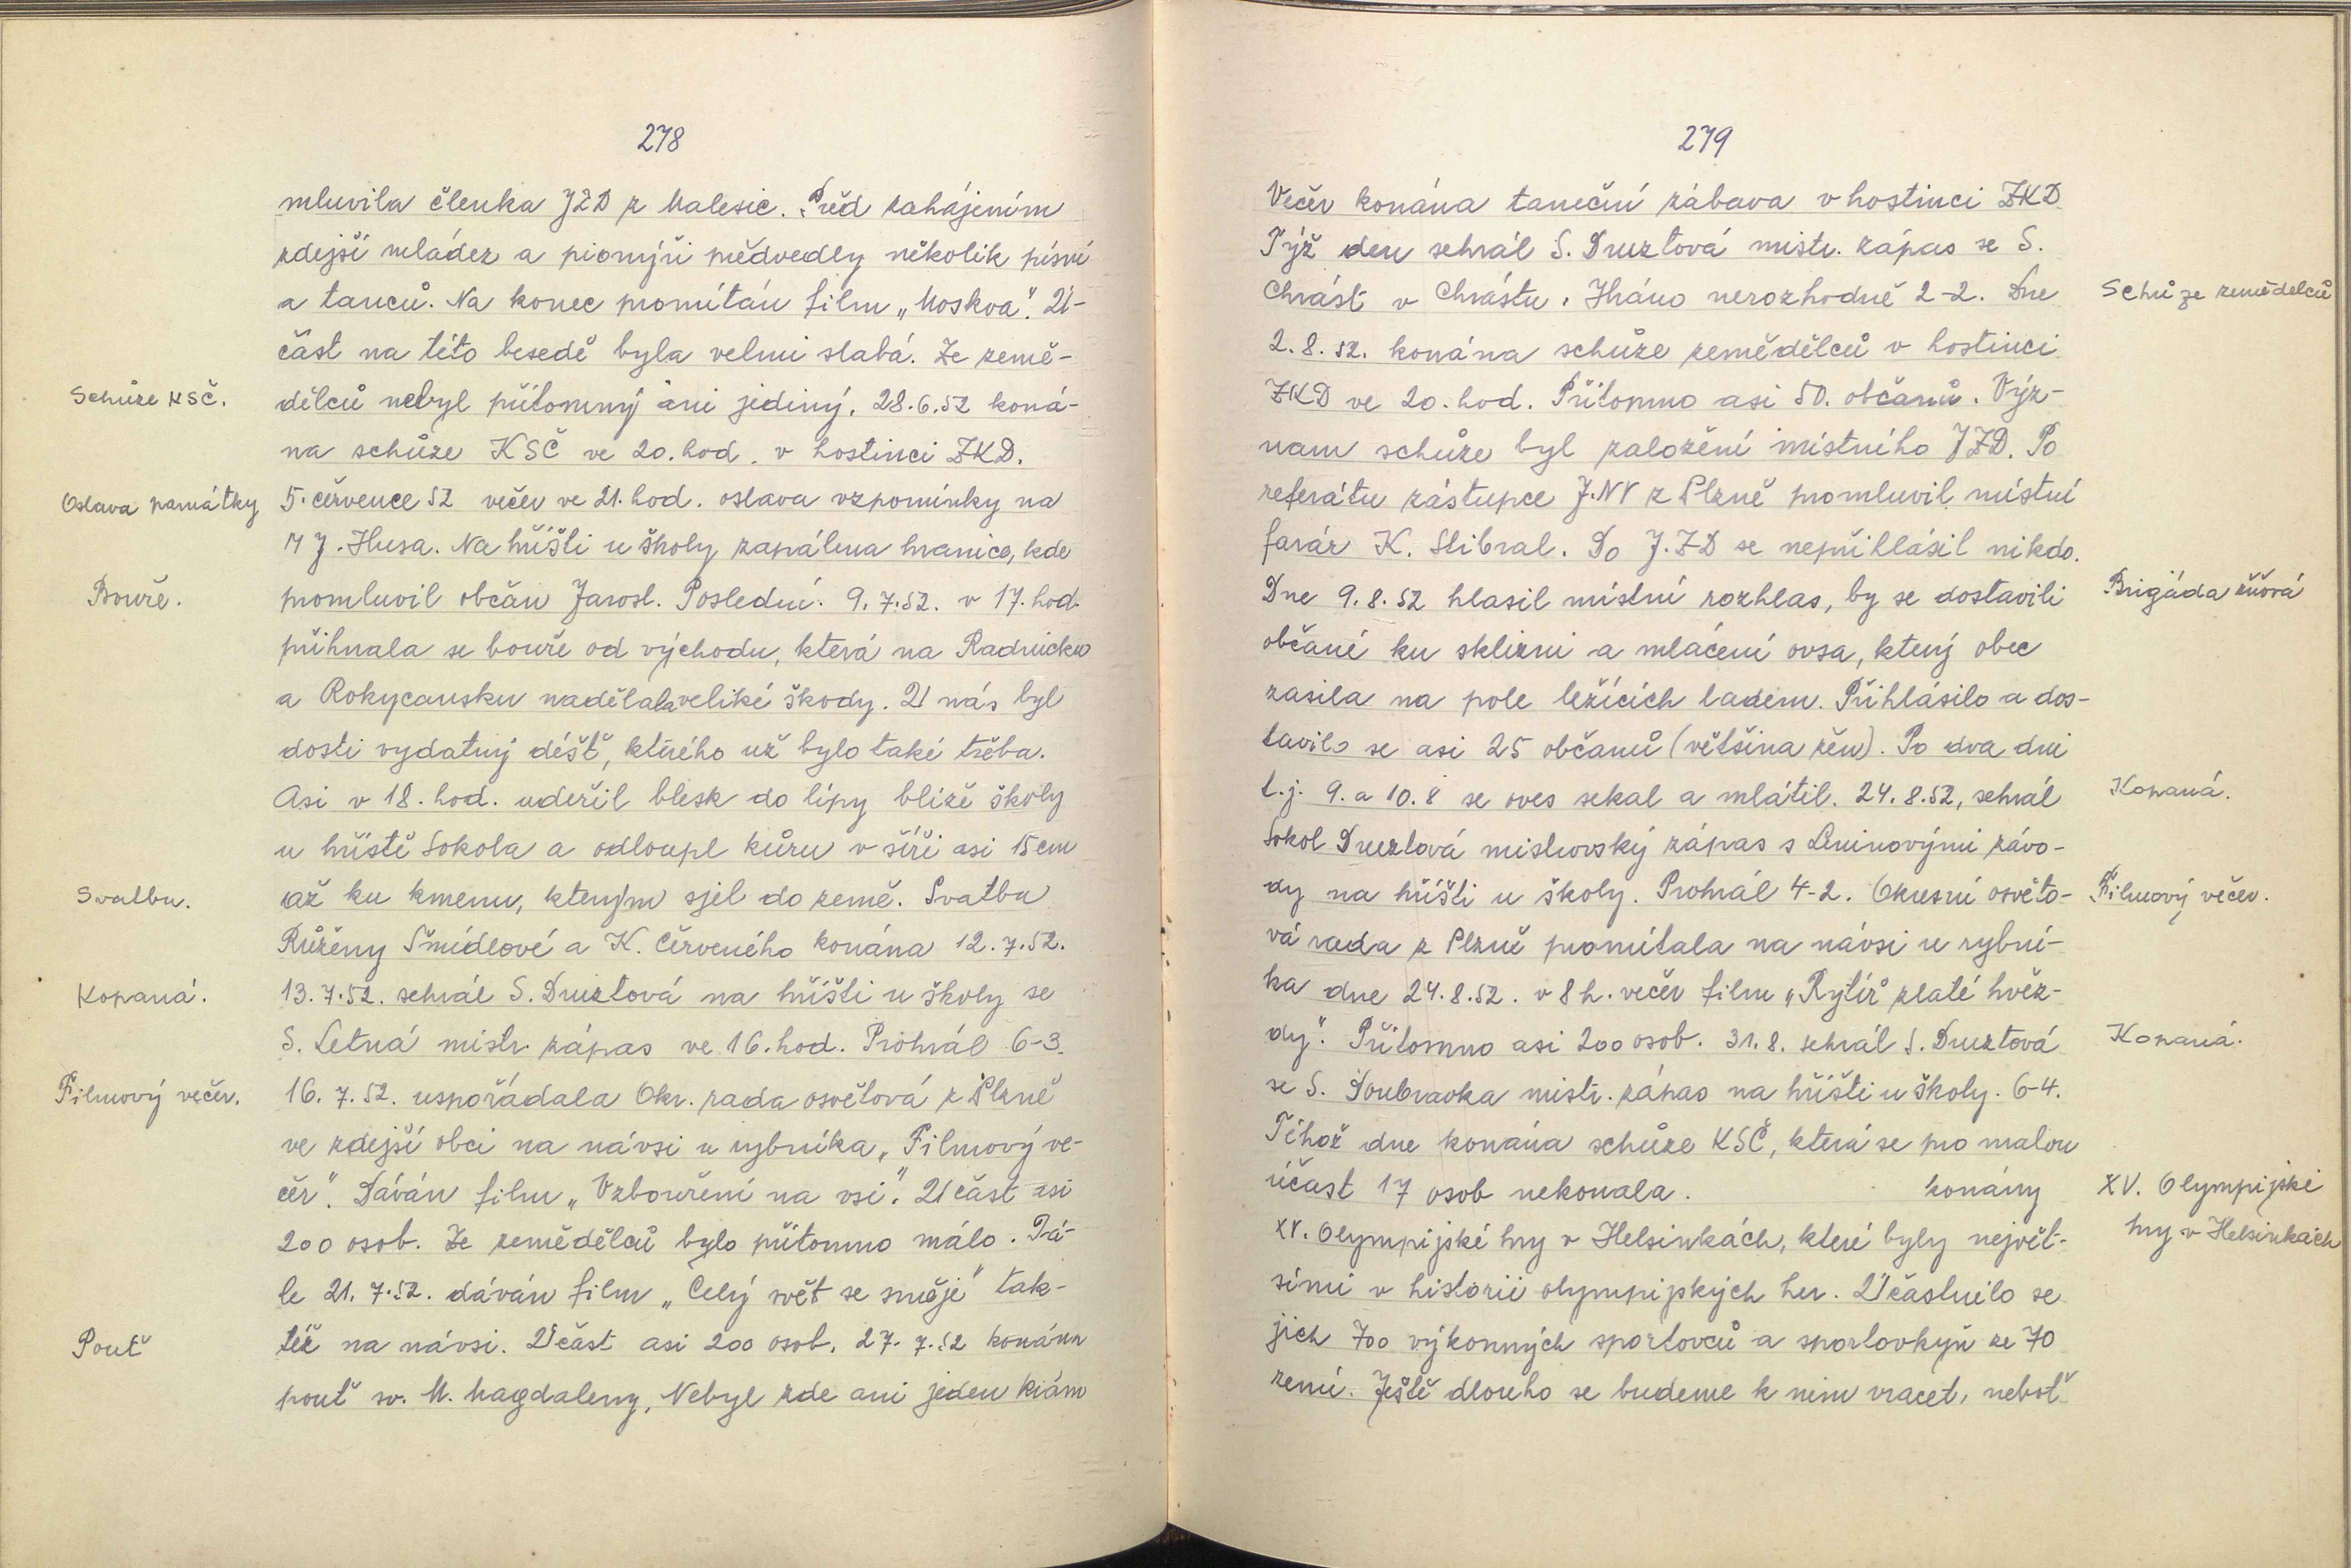 278
mluvila členka JZD z Malesic. Před zahájením
zdejší mládez a pionýři předvedly několik písní
a tanců. Na konec promítán film „Moskva". Ú-
část na této besedě byla velmi slabá. Ze země-
Schůze KSČ.
dělců nebyl přítomný ani jediný. 28.6.52 koná-
na schůze KSČ ve 20. hod. v hostinci ZKD.
Oslava památky
5. července 52 večer ve 21. hod. oslava vzpomínky na
M J. Husa. Na hřišti u školy zapálena hranice, kde
Bouře.
promluvil občan Jarosl. Poslední. 9.7.52. v 17. hod.
přihnala se bouře od východu, která na Radnicku
a Rokycansku nadělala veliké škody. U nás byl
dosti vydatný déšť, kterého už bylo také třeba.
Asi v 18. hod. udeřil blesk do lípy blíze školy
u hřiště Sokola a odloupl kůru v šíři asi 15 cm
Svatbu.
až ku kmenu, kterým sjel do země. Svatba
Růženy Šmídlové a K. Červeného konána 12.7.52.
Kopaná.
13.7.52. sehrál S. Druztová na hřišti u školy se
S. Letná mistr. zápas ve 16. hod. Prohrál 6-3.
Filmový večer.
16.7.52. uspořádala Okr. rada osvětová z Plzně
ve zdejší obci na návsi u rybníka „Filmový ve-
čer". Dáván film „Vzbouření na vsi". Účast asi
200 osob. Ze zemědělců bylo přítomno málo. Trá-
le 21.7.52. dáván film „Celý svět se směje" tak-
Pouť
též na návsi. Účast asi 200 osob. 27.7.52 konána
pouť sv. M. Magdaleny, Nebyl zde ani jeden krám
279
Večer konána taneční zábava v hostinci ZKD
Týž den sehrál S. Druztová mistr. zápas se S.
Chrást v Chrástu. Hráno nerozhodně 2-2. Dne
Schůze zemědelců
2.8.52. konána schůze zemědělců v hostinci
ZKD ve 20. hod. Přítomno asi 50. občanů. Výz-
nam schůze byl založení místního JZD. Po
referátu zástupce J.NV z Plzně promluvil místní
farár K. Slibral. Do J.ZD se nepřihlásil nikdo.
Dne 9.8.52 hlasil místní rozhlas, by se dostavili
Brigáda žňová
občané ku sklizni a mlácení ovsa, který obec
zasila na pole ležících ladem. Přihlásilo a dos-
tavilo se asi 25 občanů (většina žen). Po dva dni
t.j. 9. a 10.8 se oves sekal a mlátil. 24.8.52, sehrál
Kopaná.
Sokol Druztová mistrovský zápas s Leninovými závo-
dy na hřišti u školy. Prohrál 4-2. Okresní osvěto-
Filmový večer.
vá rada z Plzně promítala na návsi u rybní-
ka dne 24.8.52. v 8 h. večer film „Rytíř zlaté hvěz-
dy". Přítomno asi 200 osob. 31.8. sehrál S. Druztová
Kopaná.
se S. Doubravka mistr. zápas na hřišti u školy. 6-4.
Téhož dne konána schůze KSČ, která se pro malou
účast 17 osob nekonala. konány
XV. Olympijské
XV. Olympijské hry v Helsinkách, které byly největ-
hry v Helsinkách
šími v historii olympijských her. Účastnilo se
jich 700 výkonných sportovců a sportovkyň ze 70
zemí. Ještě dlouho se budeme k nim vracet, neboť